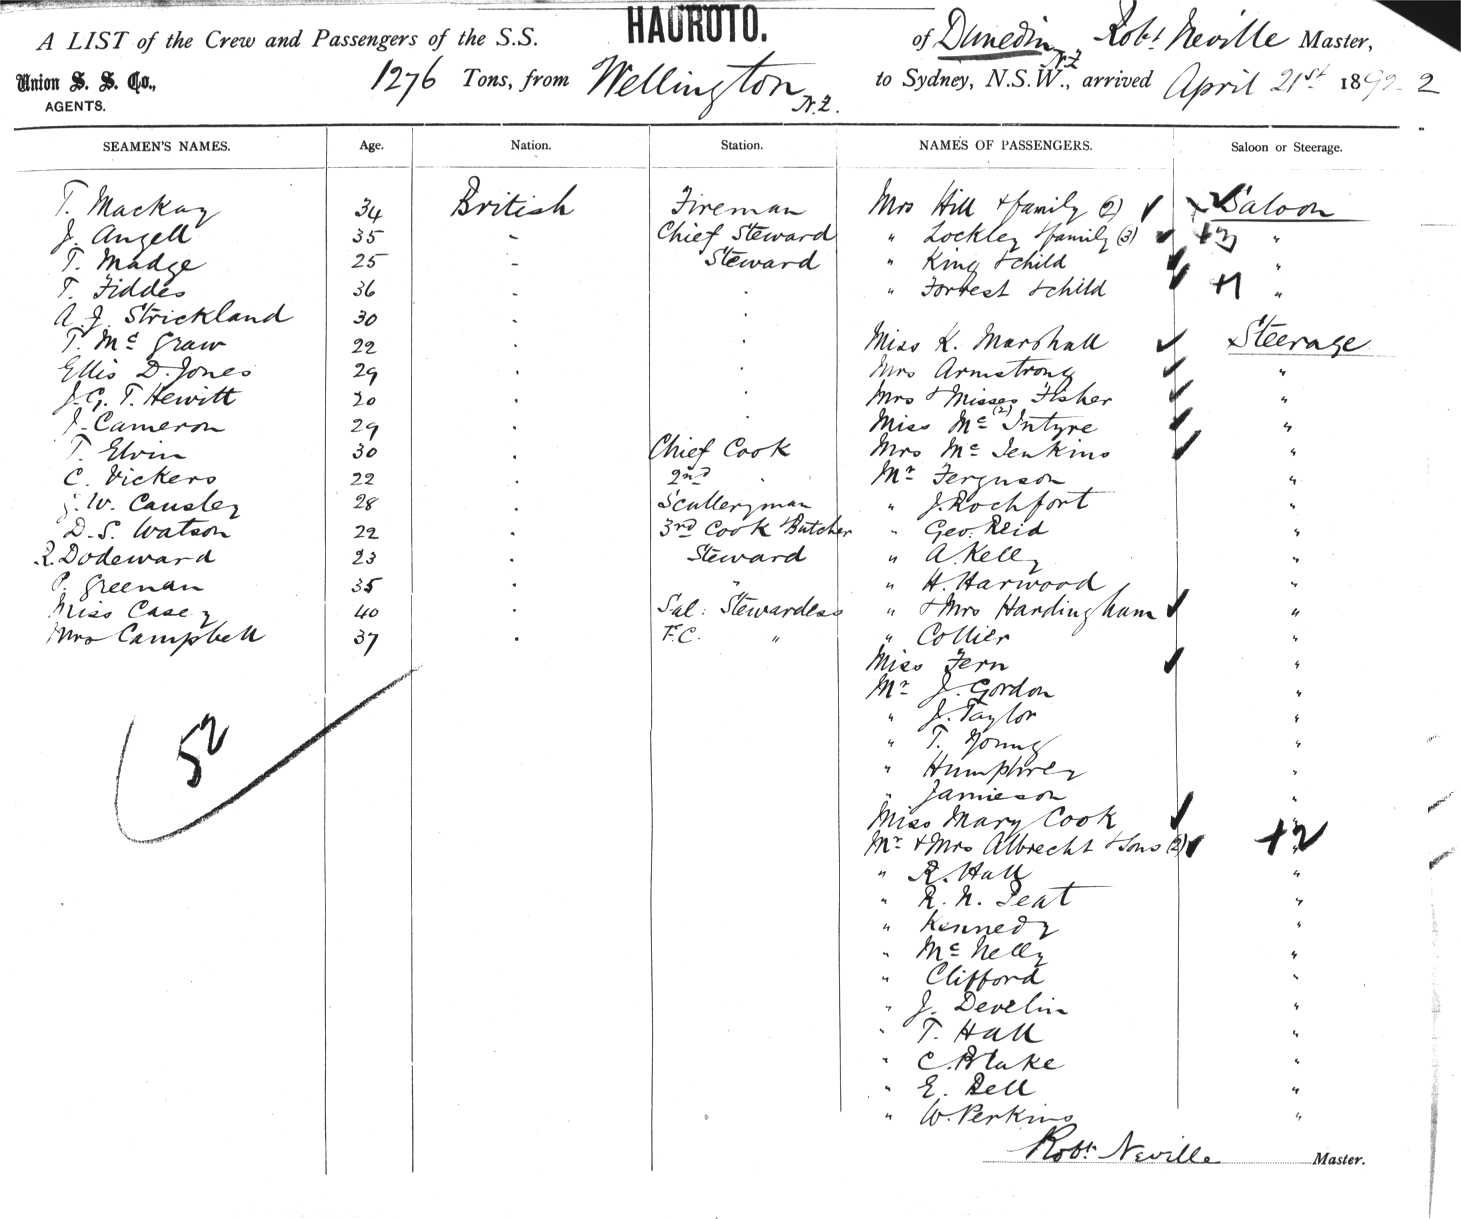 HAUROTO.
A LIST of the Crew and Passengers of the S.S. of Dunedin N.Z Robt Neville Master,
Union S. S. Co., 1276 Tons, from Wellington N.Z. to Sydney, N.S.W., arrived April 21st 1892 2
AGENTS.
SEAMEN'S NAMES. Age. Nation. Station. NAMES OF PASSENGERS. Saloon or Steerage.
T. Mackay 34 British Fireman Mrs Hill & family (2) ✓ 2 Saloon
J. Angell 35 - Chief Steward " Lockley & family (3) ✓ +3 "
T. Madge 25 - Steward " King & child ✓ "
T. Fiddes 36 - . " Forrest & child ✓ +1 "
A. J. Strickland 30 . .
T. Mc Graw 22 . . Miss K. Marshall ✓ Steerage
Ellis D. Jones 29 . . Mrs Armstrong ✓ "
J. G. T. Hewitt 20 . . Mrs & Misses (2) Fisher ✓ "
J. Cameron 29 . . Miss Mc Intyre ✓ "
T. Elvin 30 . Chief Cook Mrs Mc Jenkins ✓ "
C. Vickers 22 . 2nd . Mr Ferguson "
J. W. Causley 28 . Sculleryman " J. Rochfort "
D. S. Watson 22 . 3rd Cook & Butcher " Geo. Reid "
R. Dodeward 23 . Steward " A. Kelly "
P. Greenan 35 . " " H. Harwood "
Miss Casey 40 . Sal: Stewardess " & Mrs Hardingham ✓ "
Mrs Campbell 37 . F.C. " " Collier "
Miss Fern ✓ "
Mr J. Gordon "
" J. Taylor "
" T. Young "
52 " Humphrey "
" Jamieson "
Miss Mary Cook ✓ "
Mr & Mrs Albrecht & sons (2) ✓ +2 "
" R. Hall "
" R. N. Peat "
" Kennedy "
" Mc Nelly "
" Clifford "
" J. Develin "
" T. Hall "
" C. Blake "
" E. Bell "
" W. Perkins "
Robt Neville Master.